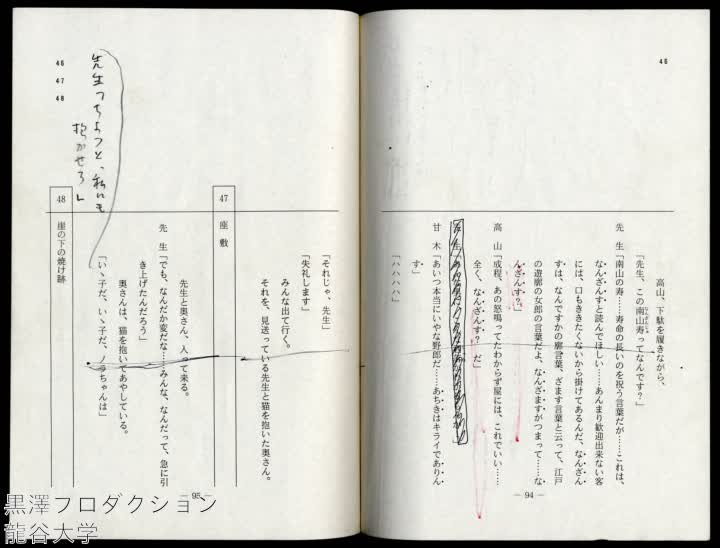 46
高山、下駄を履きながら、
「先生、この南山寿ってなんです？」
先　生「南山の寿……寿命の長いのを祝う言葉だが……これは、
なんざんすと読んでほしい……あんまり歓迎出来ない客
には、口もききたくないから掛けてあるんだ、なんざん
すは、なんですかの廓言葉、ざます言葉と云って、江戸
の遊廓の女郎の言葉だよ、なんざますがつまって……な
んざんす？」
高　山「成程、あの怒鳴ってたわからず屋には、これでいい……
全く、なんざんす？　だ」
甘　木「あいつ本当にいやな野郎だ……あちきはキライでありん
す」
「ハハハハ」
— 94 —
46
47
48
先生っちょっと、私にも
抱かせろ」
「それじゃ、先生」
「失礼します」
みんな出て行く。
それを、見送っている先生と猫を抱いた奥さん。
47　座敷
先生と奥さん、入って来る。
先　生「でも、なんだか変だな……みんな、なんだって、急に引
き上げたんだろう」
奥さんは、猫を抱いてあやしている。
「いゝ子だ、いゝ子だ、ノラちゃんは」
48　崖の下の焼け跡
— 95 —
黒澤プロダクション
龍谷大学